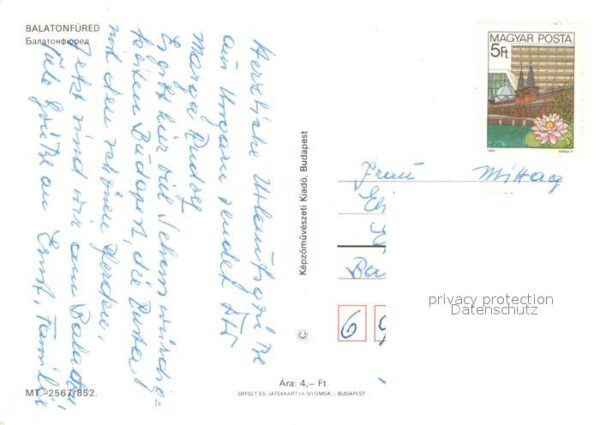 BALATONFÜRED
Балатонфюред
Herzliche Urlaubsgrüße
aus Ungarn sendet
Marga Rudolf
Es gibt hier viel Sehenswürdig-
keiten Budapest, die Puszta,
mit den schönen Pferden,
Jetzt sind wir am Balaton
Viele Grüße an Ernst, Familie
MT.-2567/852.
© Képzőművészeti Kiadó, Budapest
Ára: 4,– Ft
OFFSET ÉS JÁTÉKKÁRTYA NYOMDA - BUDAPEST
MAGYAR POSTA
5Ft
Frau Mittag
Ba
6
privacy protection
Datenschutz